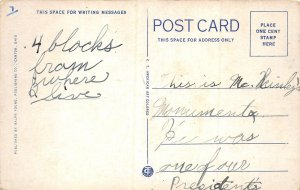 THIS SPACE FOR WRITING MESSAGES
POST CARD
THIS SPACE FOR ADDRESS ONLY
PLACE
ONE CENT
STAMP
HERE
4 blocks
from
where
I live
This is Mc. Kinley
Monument
He was
one of our
Presidents